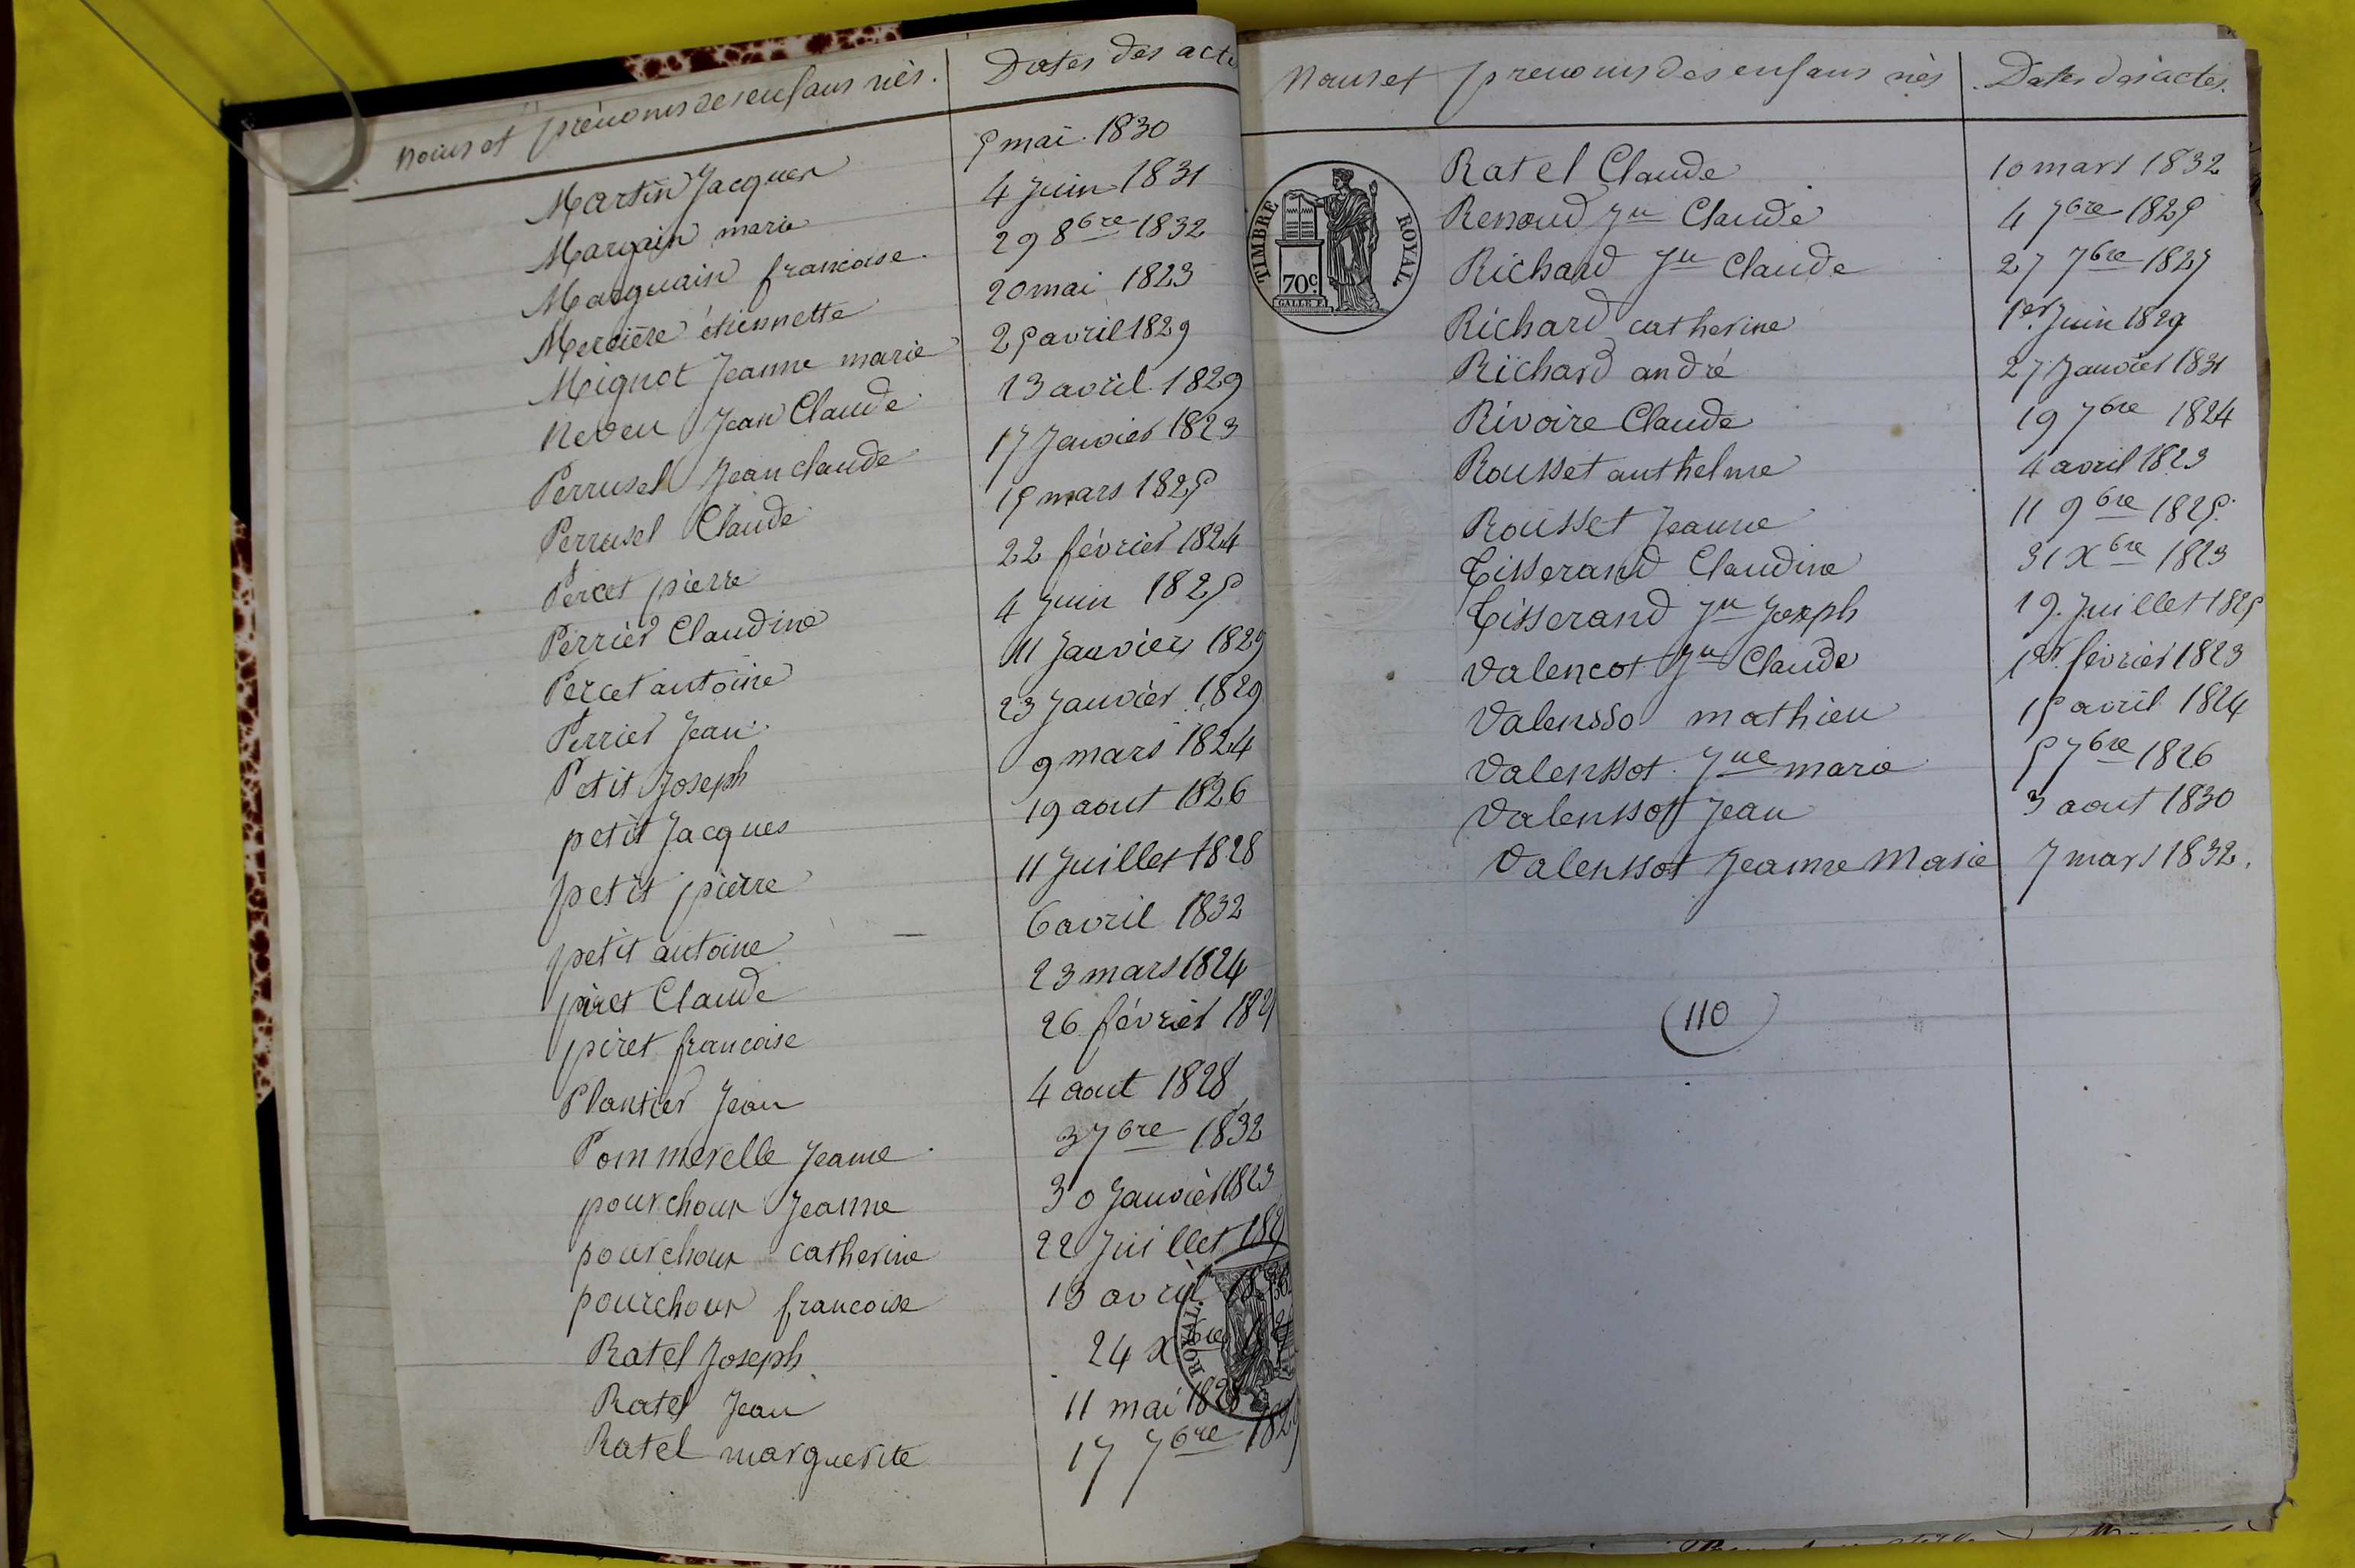 noms et prénoms des enfans nés. Dates des acte
Martin Jacques 5 mai 1830
Marquain marie 4 Juin 1831
Marguain francoise 29 8bre 1832
Mercière étiennette 20 mai 1823
Mignot Jeanne marie 25 avril 1829
Neveu Jean Claude 13 avril 1829
Perrusel Jean claude 17 Janvier 1823
Perrusel Claude 15 mars 1825
Percet pierre 22 février 1824
Perrier Claudine 4 Juin 1825
Percet antoine 11 Janvier 1829
Perrier Jean 23 Janvier 1829
Petit Joseph 9 mars 1824
petit Jacques 19 aout 1826
petit pierre 11 Juillet 1828
petit antoine 6 avril 1832
piret Claude 23 mars 1824
piret francoise 26 février
Plantier Jean 4 aout 1828
Pommerelle Jeanne 3 7bre 1832
pourchoux Jeanne 30 Janvier 1823
pourchoux catherine 22 Juillet
pourchoux francoise 13 avril
Ratel Joseph 24 Xbre
Ratel Jean 11 mai
Ratel marguerite 17 7bre 1829
ROYAL.
Noms et prenoms des enfans nés Dates des actes.
TIMBRE ROYAL
70c.
GALLE F.
Ratel Claude 10 mars 1832
Renoud Jn Claude 4 7bre 1825
Richard Jn Claude 27 7bre 1827
Richard catherine 1er Juin 1829
Richard andré 27 Janvier 1831
Rivoire Claude 19 7bre 1824
Rousset anthelme 4 avril 1823
Rousset Jeanne 11 9bre 1825.
Tisserand Claudine 31 Xbre 1823
Tisserand Jn Joseph 19. Juillet 1825
Valencot Jn Claude 1er février 1823
Valensso mathieu 15 avril 1824
Valenssot Jne marie 5 7bre 1826
Valenssot Jean 3 aout 1830
Valenssot Jeanne Marie 7 mars 1832.
(110)